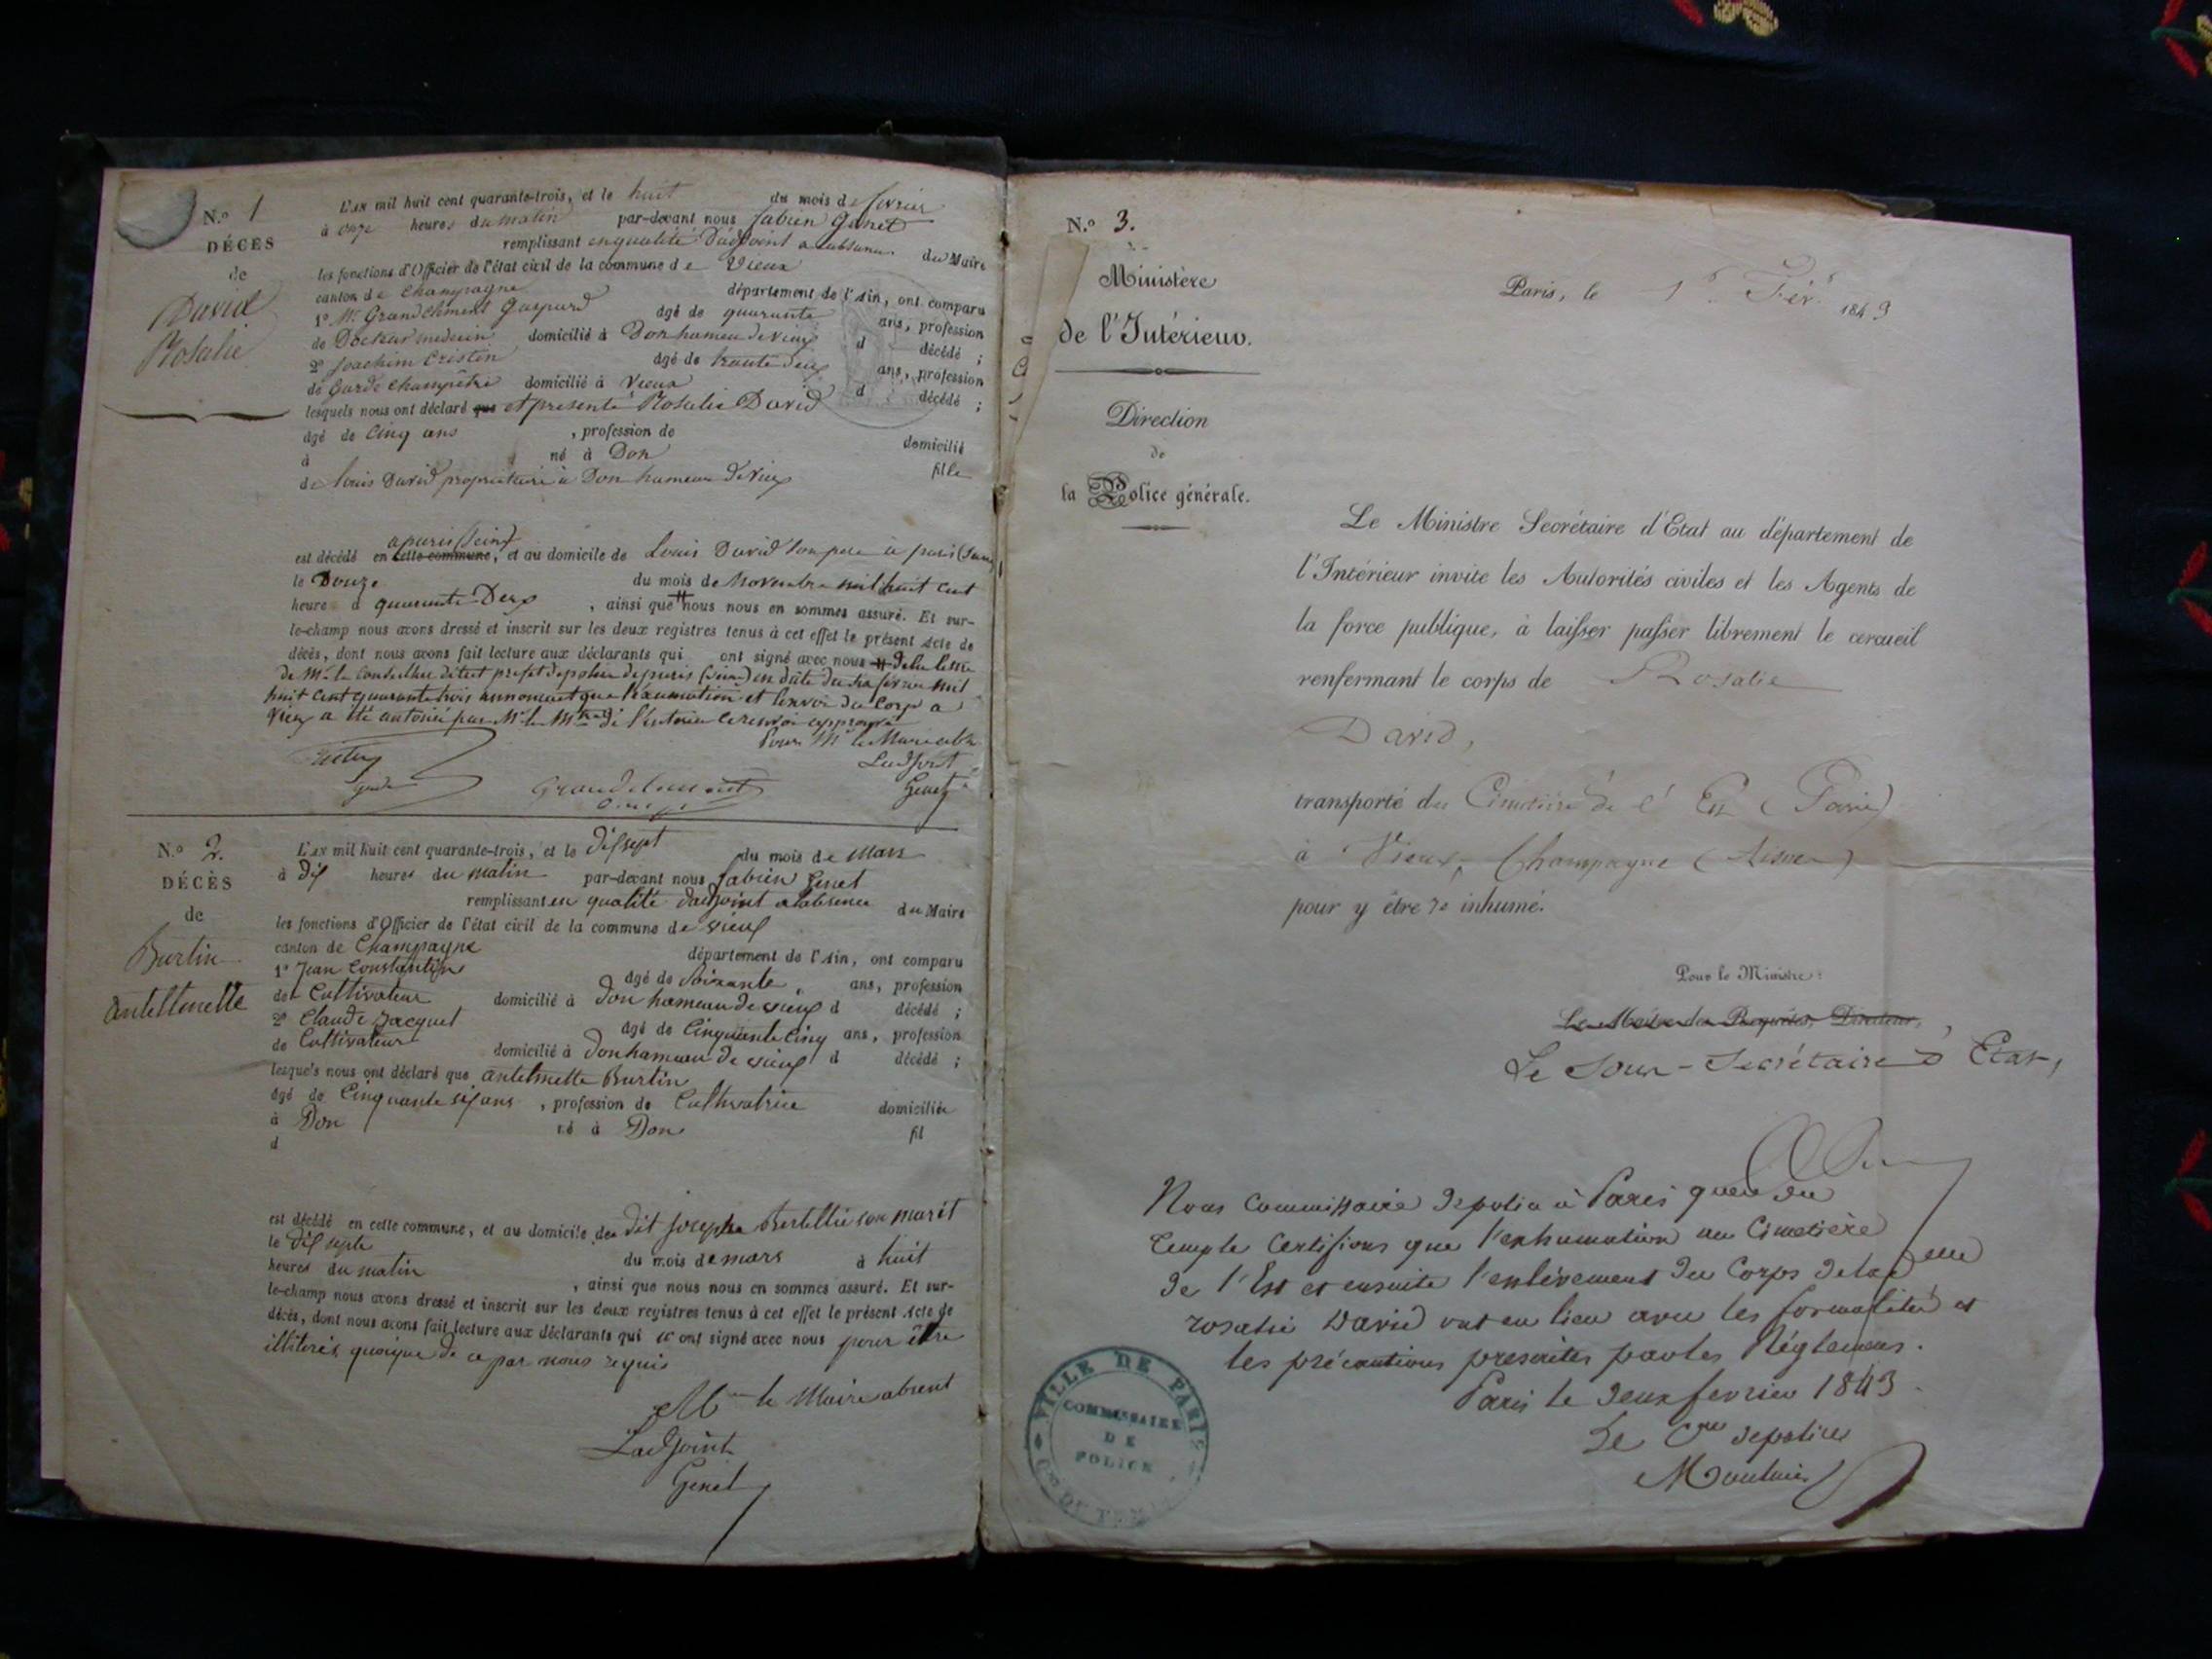 N.o 1
DÉCÈS
de
David
Rosalie
L'an mil huit cent quarante-trois, et le huit du mois de février
à onze heures du matin par-devant nous fabien Genet
remplissant en qualité d'adjoint a labsence du Maire
les fonctions d'Officier de l'état civil de la commune de Vieux
canton de Champagne département de l'Ain, ont comparu
1o Mr Grandclément Gaspard âgé de quarante ans, profession
de Docteur medecin domicilié à Don hameau de vieux d décédé ;
2o Joachim Cristin âgé de trente deux ans, profession
de Garde Champêtre domicilié à Vieux d décédé ;
lesquels nous ont déclaré que et presenté Rosalie David
âgé de Cinq ans , profession de domicilié
à né à Don fille
de louis David propriétaire à Don hameau de vieux
a paris (Seine)
est décédé en cette commune, et au domicile de Louis David son pere à paris (Seine)
le Douze du mois de Novembre mil huit cent
heure à quarante Deux , ainsi que nous nous en sommes assuré. Et sur-
le-champ nous avons dressé et inscrit sur les deux registres tenus à cet effet le présent acte de
décès, dont nous avons fait lecture aux déclarants qui ont signé avec nous de la lettre
de Mr le Conseiller detat prefet de police de paris (Seine) en date du fevrier mil
huit cent quarante trois annoncant que l'exumation et lenvoi du Corps a
vieux a été autorisé par Mr le de l'interieur le renvoi approuvé
Pour Mr le Maire
Ladjoint
Genet
N.o 2.
DÉCÈS
de
Burlin
antelmette
L'an mil huit cent quarante-trois, et le dixsept du mois de Mars
à dix heures du matin par-devant nous fabien Genet
remplissant en qualité dadjoint a labsence du Maire
les fonctions d'Officier de l'état civil de la commune de vieux
canton de Champagne département de l'Ain, ont comparu
1o Jean Constantin âgé de Soixante ans, profession
de Cultivateur domicilié à Don hameau de vieux d décédé ;
2o Claude Jacquet âgé de Cinquante Cinq ans, profession
de Cultivateur domicilié à Don hameau de vieux d décédé ;
lesquels nous ont déclaré que antelmette Burlin
âgé de Cinquante six ans , profession de Cultivatrice domiciliée
à Don né à Don fil
d
est décédé en cette commune, et au domicile de dit joseph son marit
le dix septe du mois de mars à huit
heures du matin , ainsi que nous nous en sommes assuré. Et sur-
le-champ nous avons dressé et inscrit sur les deux registres tenus à cet effet le présent acte de
décès, dont nous avons fait lecture aux déclarants qui ont signé avec nous pour être
illiterés quoique de ce par nous requis
le Maire absent
Ladjoint
Genet
N.o 3.
Ministère
de l'Intérieur.
Direction
de
la Police générale.
Paris, le 1er Fév. 1843
Le Ministre Secrétaire d'Etat au département de
l'Intérieur invite les Autorités civiles et les Agents de
la force publique, à laisser passer librement le cercueil
renfermant le corps de Rosalie
David,
transporté du Cimetière de l'Est (Paris)
à Vieux, Champagne (Aisne)
pour y être ré inhumé.
Pour le Ministre :
Le Maître des Requêtes, Directeur,
Le Sous-Secrétaire d'Etat,
Nous Commissaire de police à Paris quer du
Temple Certifions que l'exhumation au Cimetière
de l'Est et ensuite l'enlèvement du Corps de la delle
rosalie David ont eu lieu avec les formalités et
les précautions prescrites par les Réglemens.
Paris le deux fevrier 1843
Le Cre de police
VILLE DE PARIS
COMMISSAIRE
DE
POLICE